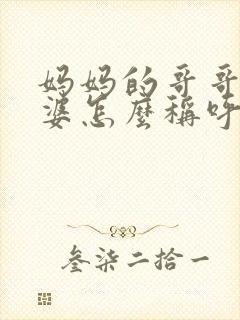 妈妈的哥哥
婆怎麼稱呼
叄柒二拾一